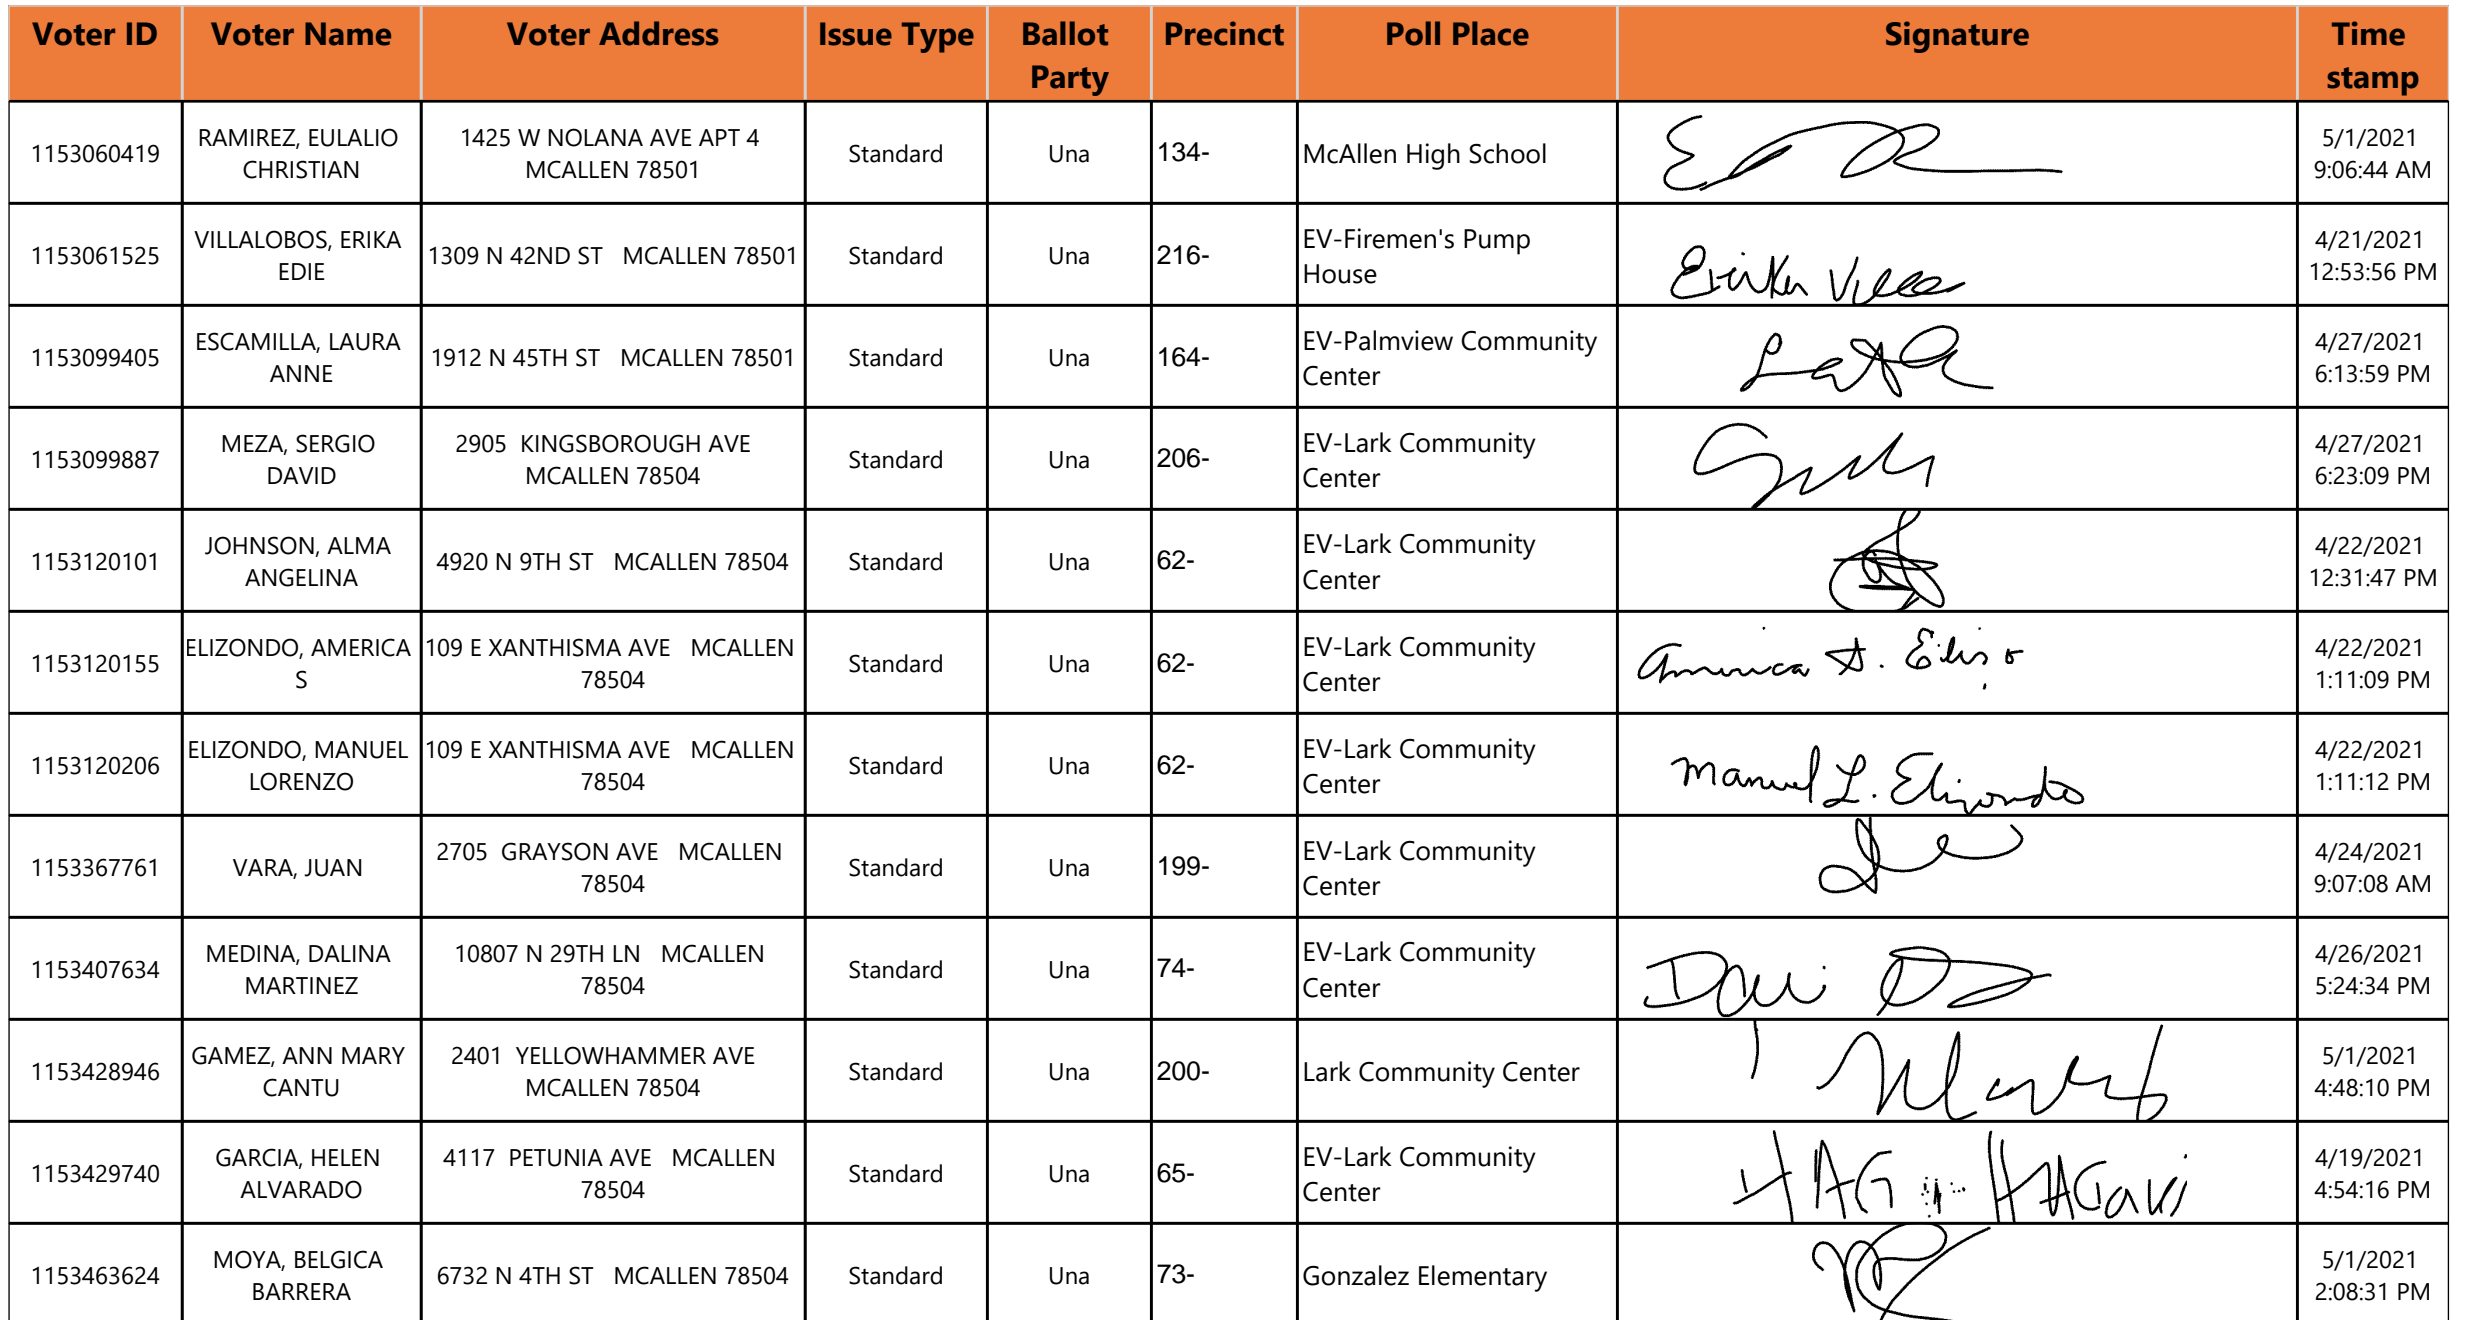 Voter ID Voter Name Voter Address Issue Type Ballot Party Precinct Poll Place Signature Time stamp
1153060419 RAMIREZ, EULALIO CHRISTIAN 1425 W NOLANA AVE APT 4 MCALLEN 78501 Standard Una 134- McAllen High School 5/1/2021 9:06:44 AM
1153061525 VILLALOBOS, ERIKA EDIE 1309 N 42ND ST MCALLEN 78501 Standard Una 216- EV-Firemen's Pump House Erika 4/21/2021 12:53:56 PM
1153099405 ESCAMILLA, LAURA ANNE 1912 N 45TH ST MCALLEN 78501 Standard Una 164- EV-Palmview Community Center 4/27/2021 6:13:59 PM
1153099887 MEZA, SERGIO DAVID 2905 KINGSBOROUGH AVE MCALLEN 78504 Standard Una 206- EV-Lark Community Center 4/27/2021 6:23:09 PM
1153120101 JOHNSON, ALMA ANGELINA 4920 N 9TH ST MCALLEN 78504 Standard Una 62- EV-Lark Community Center 4/22/2021 12:31:47 PM
1153120155 ELIZONDO, AMERICA S 109 E XANTHISMA AVE MCALLEN 78504 Standard Una 62- EV-Lark Community Center America S. 4/22/2021 1:11:09 PM
1153120206 ELIZONDO, MANUEL LORENZO 109 E XANTHISMA AVE MCALLEN 78504 Standard Una 62- EV-Lark Community Center Manuel L. Elizondo 4/22/2021 1:11:12 PM
1153367761 VARA, JUAN 2705 GRAYSON AVE MCALLEN 78504 Standard Una 199- EV-Lark Community Center 4/24/2021 9:07:08 AM
1153407634 MEDINA, DALINA MARTINEZ 10807 N 29TH LN MCALLEN 78504 Standard Una 74- EV-Lark Community Center 4/26/2021 5:24:34 PM
1153428946 GAMEZ, ANN MARY CANTU 2401 YELLOWHAMMER AVE MCALLEN 78504 Standard Una 200- Lark Community Center 5/1/2021 4:48:10 PM
1153429740 GARCIA, HELEN ALVARADO 4117 PETUNIA AVE MCALLEN 78504 Standard Una 65- EV-Lark Community Center HAG 4/19/2021 4:54:16 PM
1153463624 MOYA, BELGICA BARRERA 6732 N 4TH ST MCALLEN 78504 Standard Una 73- Gonzalez Elementary 5/1/2021 2:08:31 PM